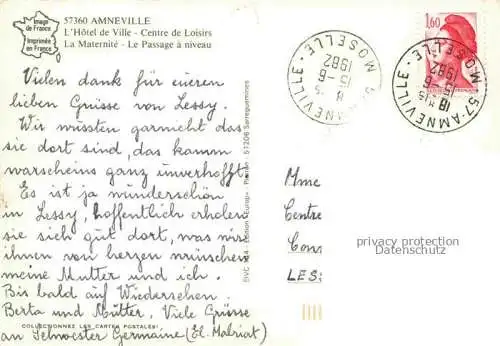 Image de France
Imprimée en France
57360 AMNEVILLE
L'Hôtel de Ville - Centre de Loisirs
La Maternité - Le Passage à niveau
Vielen dank für eueren
lieben Grüsse von Lessy.
Wir müssten garnicht das
sie dort sind, das kamm
warscheins ganz unverhofft.
Es ist ja wunderschön
in Lessy, hoffentlich erholen
sie sich gut dort, was wir
ihnen von herzen wünschen
meine Mutter und ich.
Bis bald auf Wiedersehen.
Berta und Mütter, Viele Grüsse
an Schwester Germaine (El. Malriat)
COLLECTIONNEZ LES CARTES POSTALES!
57206 Sarreguemines
1,60
57-AMNEVILLE
15-6
1982
MOSELLE
57-AMNEVILLE
18 H
15-6
1982
MOSELLE
Mme
Centre
Con
LES
privacy protection
Datenschutz